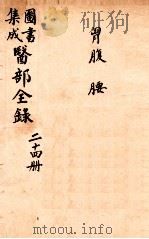 胃腹腰
圖書
集成
醫部全錄
二十四册